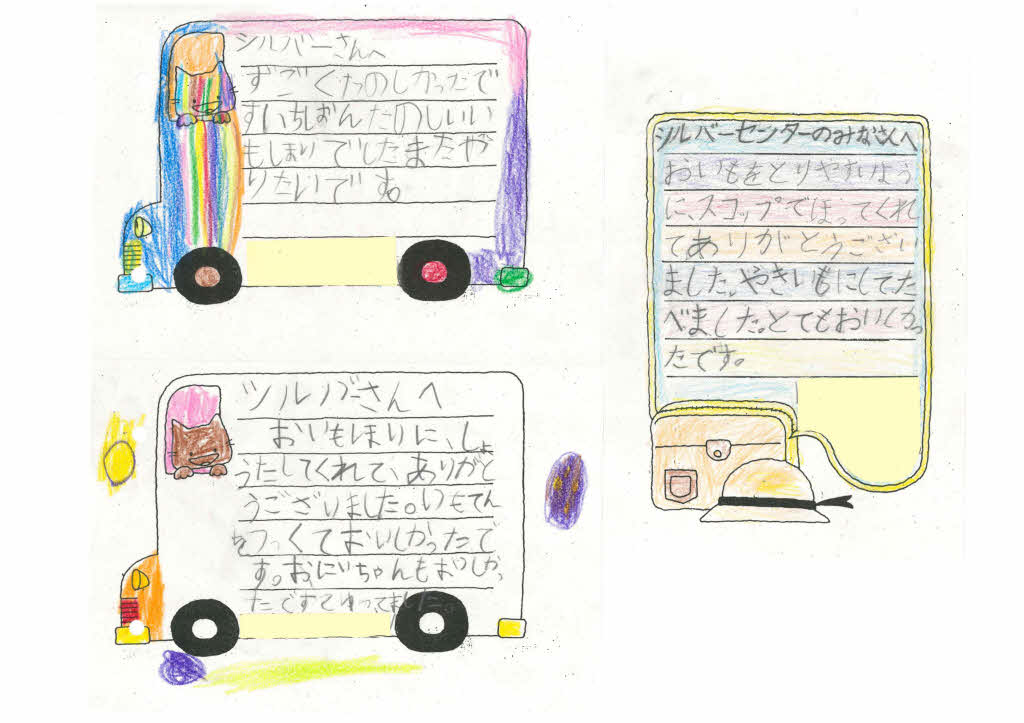 シルバーさんへ
ずごくたのしかったで
すいちしおんたのしいい
もしほりでしたまたやが
りたいです。
ツルバーさんへ
おいもほりに、しょ
うたしてくれて、ありがと
うございました。いもてん
をつっくておいしかったで
す。おにいちゃんもおいしかっ
たですてゆってました。
シルバーセンターのみなさんへ
おいもをとりやすいよう
に、スコップでほってくれ
てありがとうござい
ました。やきいもにしてた
べました。とてもおいしかっ
たです。